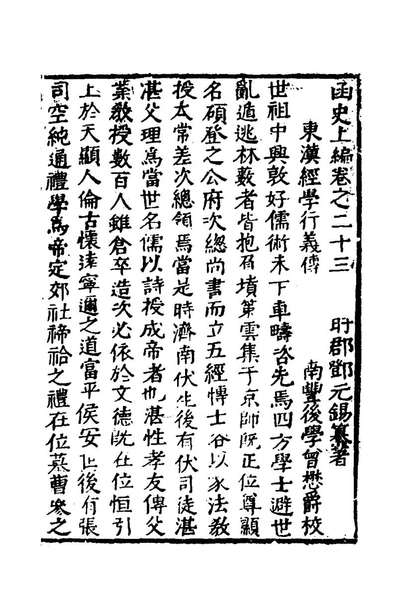 函史上編卷之二十三 盱郡鄧元錫纂著
東漢經學行義傳 南豐後學曾懋爵校
世祖中興敦好儒術未下車疇咨先焉四方學士避世
亂遁逃林藪者皆抱負墳策雲集于京師既正位尊顯
名碩登之公府次總尚書而立五經博士各以家法教
授太常差次總領焉當是時濟南伏生後有伏司徒湛
湛父理爲當世名儒以詩授成帝者也湛性孝友傳父
業教授數百人雖倉卒造次必依於文德既在位恒引
上於天顯人倫古懷遠寧邇之道富平侯安世後有張
司空純通禮學爲帝定郊社禘祫之禮在位慕曹參之